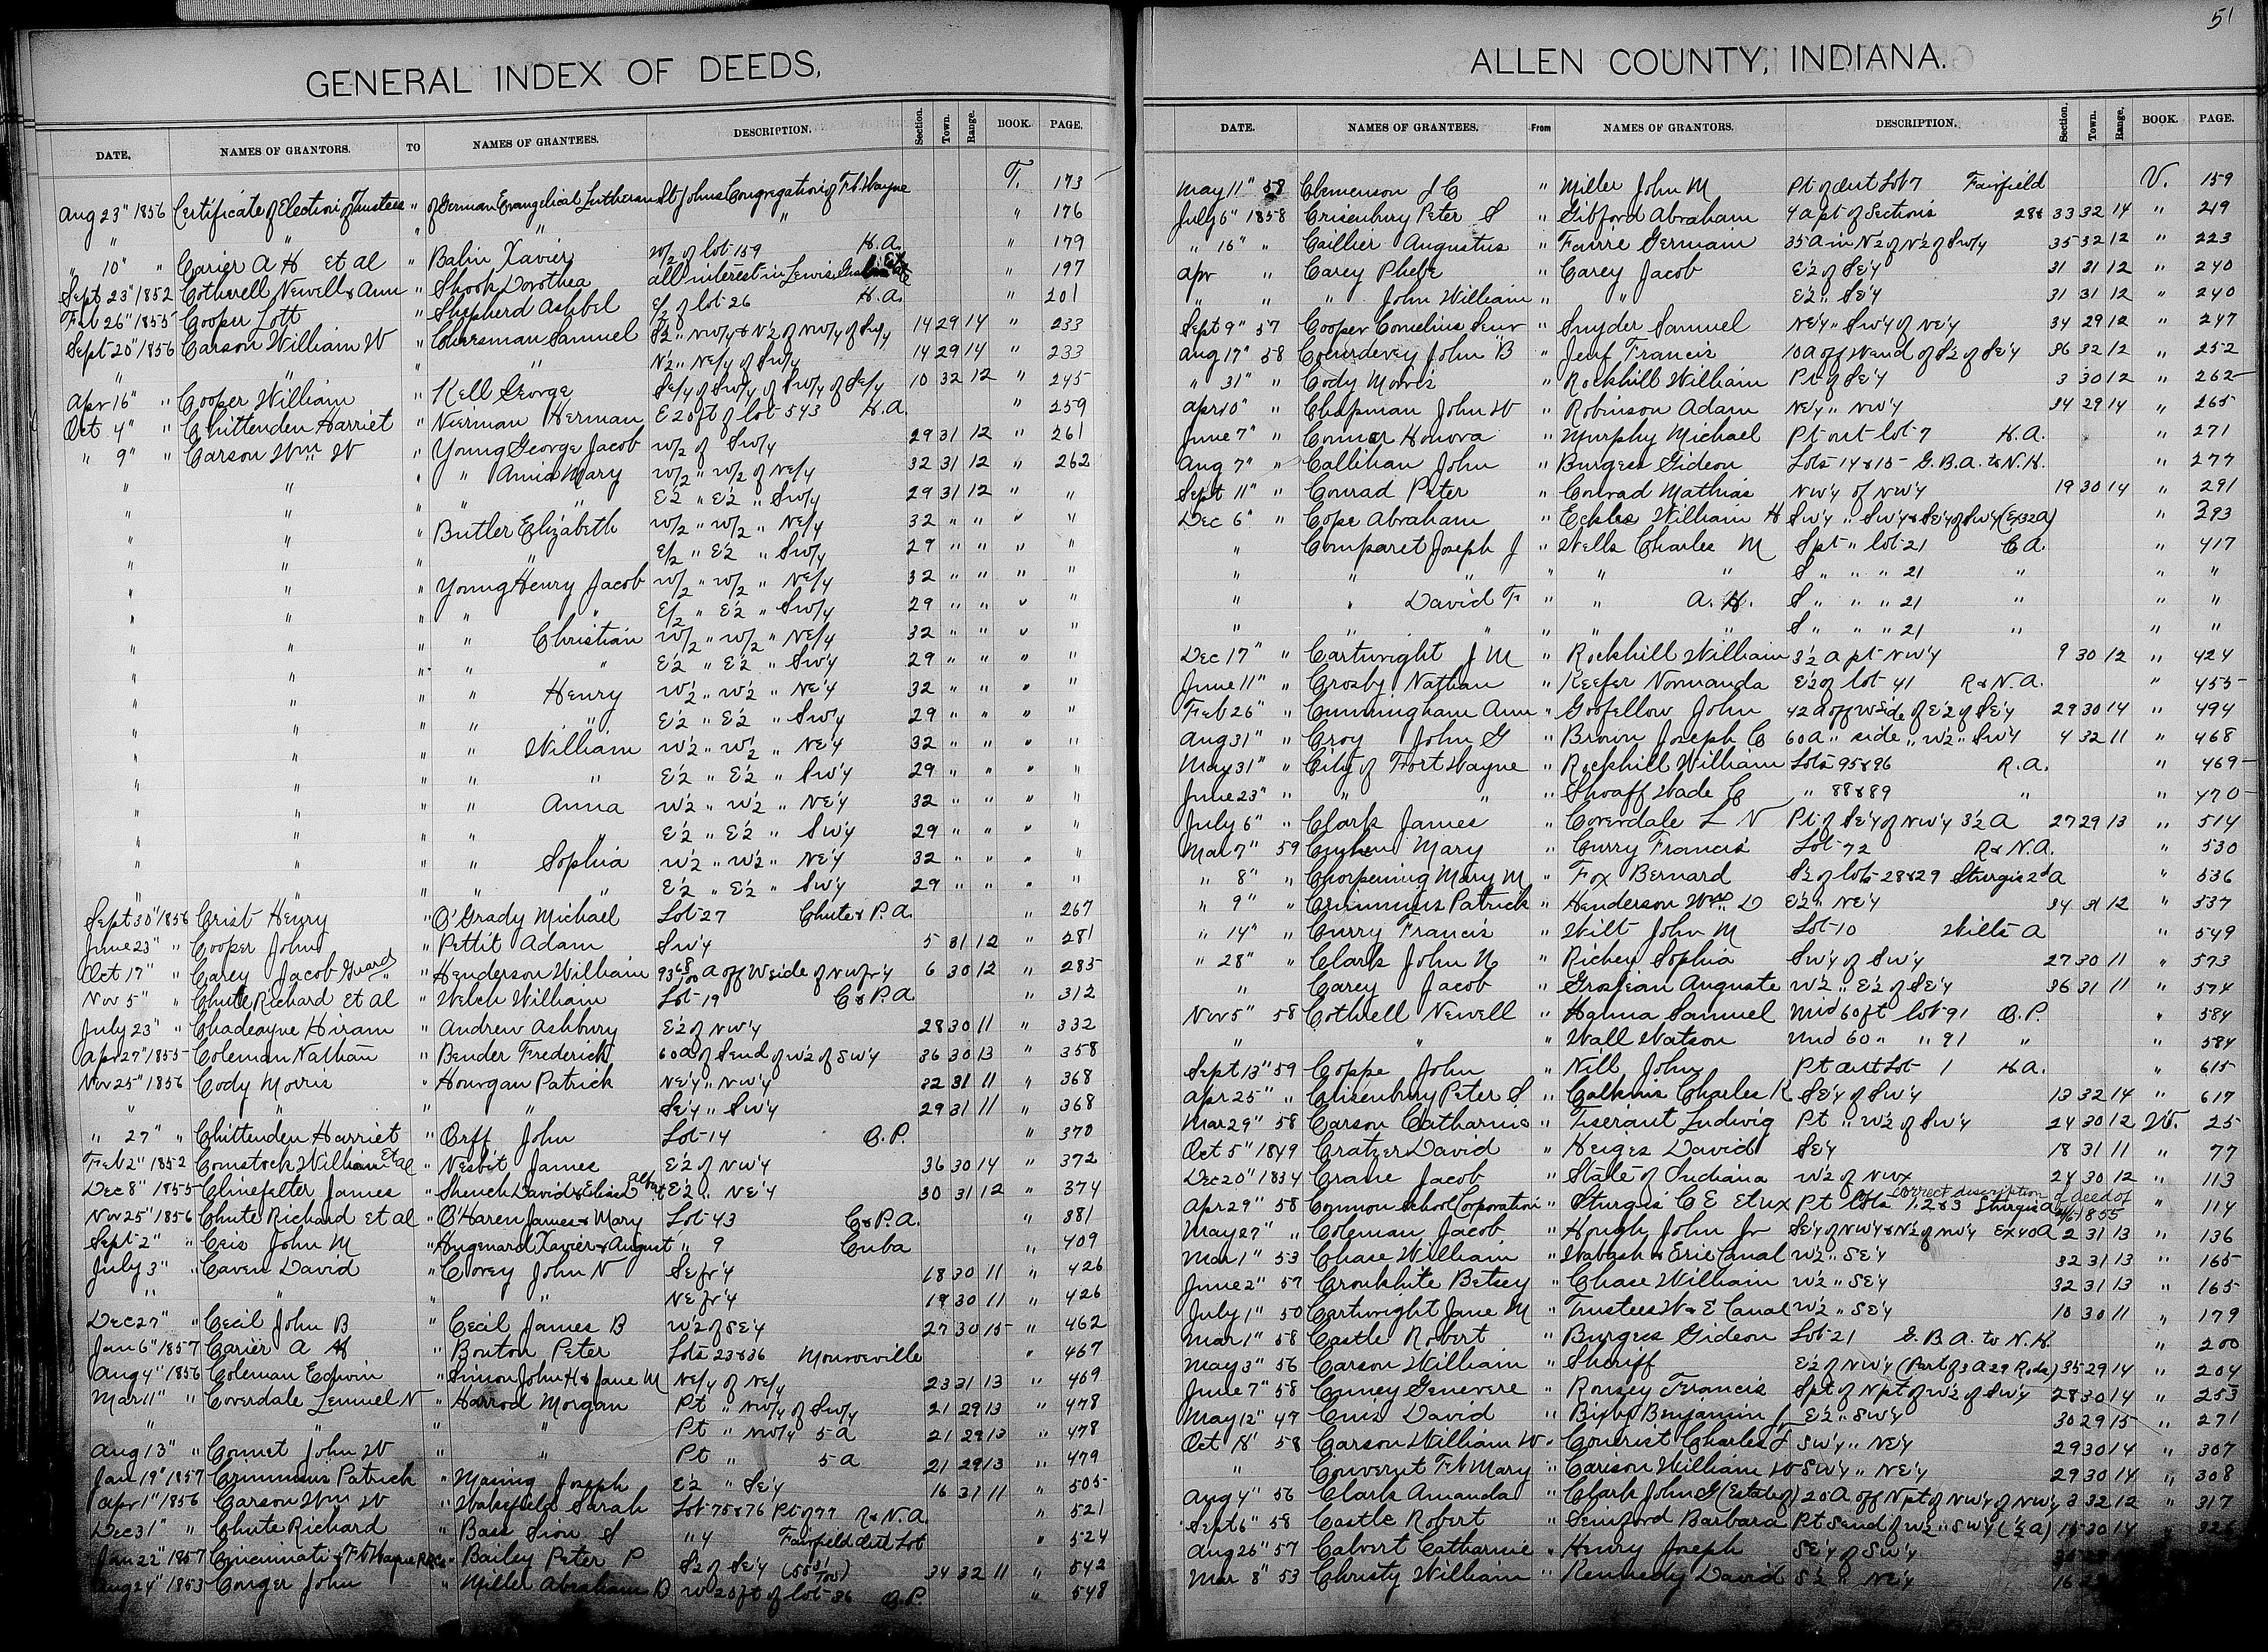 51
GENERAL INDEX OF DEEDS,
DATE. NAMES OF GRANTORS. TO NAMES OF GRANTEES. DESCRIPTION. Section. Town. Range. BOOK. PAGE.
Aug 23" 1856 Certificate of Election of Trustees " of German Evangelical Lutheran St Johns Congregation of Ft. Wayne T. 173
" " " " " " 176
" 10" " Carier A H et al " Balin Xavier W/2 of lot 159 H.A. " 179
Sept 23" 1852 Cotherell Newell & Ann " Shook Dorothea all interest in Lewis " 197
Feb 26" 1855 Cooper Lott " Shepherd Ashbel E/2 of lot 26 H.A. " 201
Sept 20" 1856 Carson William W " Chresman Samuel S2 " NW/4 & N2 of NW/4 of SW/4 14 29 14 " 233
" " " " N2 " NE/4 of SW/4 14 29 14 " 233
Apr 16" " Cooper William " Kell George SE/4 of SW/4 of SW/4 of SE/4 10 32 12 " 245
Oct 4" " Chittenden Harriet " Nierman Herman E 20 ft of lot 543 H.A. " 259
" 9" " Carson Wm W " Young George Jacob W/2 of SW/4 29 31 12 " 261
" " " " Anna Mary W/2 " W/2 of NE/4 32 31 12 " 262
" " " " " E2 " E2 " SW/4 29 31 12 " "
" " " Butler Elizabeth W/2 " W/2 " NE/4 32 " " " "
" " " " E/2 " E2 " SW/4 29 " " " "
" " " Young Henry Jacob W/2 " W/2 " NE/4 32 " " " "
" " " " " E/2 " E2 " SW/4 29 " " " "
" " " " Christian W/2 " W/2 " NE/4 32 " " " "
" " " " " E2 " E2 " SW4 29 " " " "
" " " " Henry W2 " W2 " NE4 32 " " " "
" " " " " E2 " E2 " SW4 29 " " " "
" " " " William W2 " W2 " NE4 32 " " " "
" " " " " E2 " E2 " SW4 29 " " " "
" " " " Anna W2 " W2 " NE4 32 " " " "
" " " " " E2 " E2 " SW4 29 " " " "
" " " " Sophia W2 " W2 " NE4 32 " " " "
" " " " " E2 " E2 " SW4 29 " " " "
Sept 30" 1856 Crist Henry " O'Grady Michael Lot 27 Chute & P.A. " 267
June 23" " Cooper John " Pettit Adam SW4 5 31 12 " 281
Oct 17" " Carey Jacob Guard " Henderson William 93 68/100 A off W side of NW fr 4 6 30 12 " 285
Nov 5" " Chute Richard et al " Welch William Lot 19 C & P.A. " 312
July 23" " Chadeayne Hiram " Andrew Ashbury E2 of NW4 28 30 11 " 332
Apr 27" 1855 Coleman Nathan " Bender Frederick 60 A of S end of W2 of SW4 36 30 13 " 358
Nov 25" 1856 Cody Morris " Hourgan Patrick NE4 " NW4 32 31 11 " 368
" " " " SE4 " SW4 29 31 11 " 368
" 27" " Chittenden Harriet " Orff John Lot 14 O.P. " 370
Feb 2" 1852 Comstock William et al " Nesbit James E2 of NW4 36 30 14 " 372
Dec 8" 1855 Clinefelter James " Shenck David & Elias E2 " NE4 30 31 12 " 374
Nov 25" 1856 Chute Richard et al " O'Haren James & Mary Lot 43 C & P.A. " 381
Sept 2" " Ceis John M " Hugenard Xavier & August " 9 Cuba " 409
July 3" " Caven David " Corey John N SE fr 4 18 30 11 " 426
" " " " NE fr 4 19 30 11 " 426
Dec 27" " Cecil John B " Cecil James B W2 of SE4 27 30 15 " 462
Jan 6" 1857 Carier A H " Bouton Peter Lots 23 & 36 Monroeville " 467
Aug 4" 1856 Coleman Edwin " Simon John H & Jane M NE/4 of NE/4 23 31 13 " 469
Mar 11" " Coverdale Lemuel N " Harrod Morgan Pt " NW/4 of SW/4 21 29 13 " 478
" " " " Pt " NW/4 5 A 21 29 13 " 478
Aug 13" " Comet John W " " Pt " 5 A 21 29 13 " 479
Jan 19" 1857 Crummus Patrick " Masing Joseph E2 " SE4 16 31 11 " 505
Apr 1" 1856 Carson Wm W " Wakefield Sarah Lot 75 & 76 Pt of 77 R & N.A. " 521
Dec 31" " Chute Richard " Bass Sion S " 4 Fairfield Out Lot " 524
Jan 22" 1857 Cincinnati & Ft Wayne RR Co " Bailey Peter P S2 of SE4 34 32 11 " 542
Aug 24" 1853 Conger John " Miller Abraham D W 20 ft of lot 86 O.P. " 548
ALLEN COUNTY, INDIANA.
DATE. NAMES OF GRANTEES. From NAMES OF GRANTORS. DESCRIPTION. Section. Town. Range. BOOK. PAGE.
May 11" 58 Clemenson J C " Miller John M Pt of Out Lot 7 Fairfield V. 159
July 6" 1858 Crisenbury Peter S " Gibford Abraham 4 a pt of Sections 28 & 33 32 14 " 219
" 16" " Caillier Augustus " Favre Germain 35 A in N2 of N2 of SW/4 35 32 12 " 223
Apr " Carey Phebe " Carey Jacob E2 of SE4 31 31 12 " 240
" " " John William " " E2 " SE4 31 31 12 " 240
Sept 9" 57 Cooper Cornelius Senr " Snyder Samuel NE4 " SW4 of NE4 34 29 12 " 247
Aug 17" 58 Courdevey John B " Jeuf Francis 10 A off W end of S2 of SE4 36 32 12 " 252
" 31" " Cody Morris " Rockhill William Pt of SE4 3 30 12 " 262
Apr 10" " Chapman John W " Robinson Adam NE4 " NW4 34 29 14 " 265
June 7" " Connor Honora " Murphy Michael Pt out lot 7 H.A. " 271
Aug 7" " Callihan John " Burgess Gideon Lots 14 & 15 G.B.A. to N.H. " 277
Sept 11" " Conrad Peter " Conrad Mathias NW4 of NW4 19 30 14 " 291
Dec 6" " Cope Abraham " Eckles William H SW4 " SW4 & SE4 of SW4 (Ex 32 A) " 393
" Comparet Joseph J " Wells Charles M S pt " lot 21 C.A. " 417
" " " " " " S " " " 21 " " "
" " David F " " A. H. S " " " 21 " " "
" " " " " " S " " " 21 " " "
Dec 17" " Cartwright J M " Rockhill William 3½ A pt NW4 9 30 12 " 424
June 11" " Crosby Nathan " Keefer Normanda E2 of lot 41 R & N.A. " 455
Feb 26" " Cunningham Ann " Goofellow John 42 A off W side of E2 of SE4 29 30 14 " 494
Aug 31" " Croy John G " Brown Joseph C 60 A " side " W2 " SW4 4 32 11 " 468
May 31" " City of Fort Wayne " Rockhill William Lots 95 & 96 R.A. " 469
June 23" " " " " Shoaff Wade C " 88 & 89 " " 470
July 6" " Clark James " Coverdale L N Pt of SE4 of NW4 3½ A 27 29 13 " 514
Mar 7" 59 Mary " Curry Francis Lot 72 R & N.A. " 530
" 8" " Chorpenning Mary M " Fox Bernard S2 of lots 28 & 29 Sturgis 2d A " 536
" 9" " Crummus Patrick " Henderson Wm D E2 " NE4 34 31 12 " 537
" 14" " Curry Francis " Wilt John M Lot 10 Wilts A " 549
" 28" " Clark John N " Richey Sophia SW4 of SW4 27 30 11 " 573
" Carey Jacob " Grosjean Auguste W2 " E2 of SE4 36 31 11 " 574
Nov 5" 58 Cothrell Newell " Hanna Samuel Mid 60 ft lot 91 O.P. " 584
" " " Wall Watson Und 60 " " 91 " " 584
Sept 13" 59 Coppe John " Nill John Pt Out Lot 1 H.A. " 615
Apr 25" " Crisenbury Peter S " Calkins Charles R SE4 of SW4 13 32 14 " 617
Mar 29" 58 Carson Catharine " Tiserant Ludwig Pt " W2 of SW4 24 30 12 W. 25
Oct 5" 1849 Cratzer David " Heiges David SE4 18 31 11 " 77
Dec 20" 1834 Crane Jacob " State of Indiana W2 of NW4 24 30 12 " 113
Apr 29" 58 Common School Corporation " Sturgis C E et ux Pt lots 1, 2 & 3 Sturgis A correct description of deed of 1855 " 114
May 27" " Coleman Jacob " Hough John Jr SE4 of NW4 & N2 of NW4 Ex 40 A 2 31 13 " 136
Mar 1" 53 Chase William " Wabash & Erie Canal W2 " SE4 32 31 13 " 165
June 2" 57 Cronkhite Betsey " Chase William W2 " SE4 32 31 13 " 165
July 1" 50 Cartwright Jane M " Trustees W & E Canal W2 " SE4 10 30 11 " 179
Mar 1" 58 Castle Robert " Burgess Gideon Lot 21 G.B.A. to N.H. " 200
May 3" 56 Carson William " Sheriff E2 of NW4 (Part of 3 A 29 Rods) 35 29 14 " 204
June 7" 58 Cuney Genevere " Rousey Francis S pt of N pt of W2 of SW4 28 30 14 " 253
May 12" 47 Cuis David " Bixby Benjamin E2 " SW4 30 29 15 " 271
Oct 18" 58 Carson William W " Charles F SW4 " NE4 29 30 14 " 307
" Mary " Carson William W SW4 " NE4 29 30 14 " 308
Aug 4" 56 Clark Amanda " Clark John G (Estate of) 20 A off N pt of NW4 of NW4 3 32 12 " 317
Sept 6" 58 Castle Robert " Barbara Pt S end of W2 " SW4 (½ A) 30 14 " 326
Aug 26" 57 Calvert Catharine " Henry Joseph SE4 of SW4
Mar 8" 53 Christy William " Kennedy David S2 " NE4 16